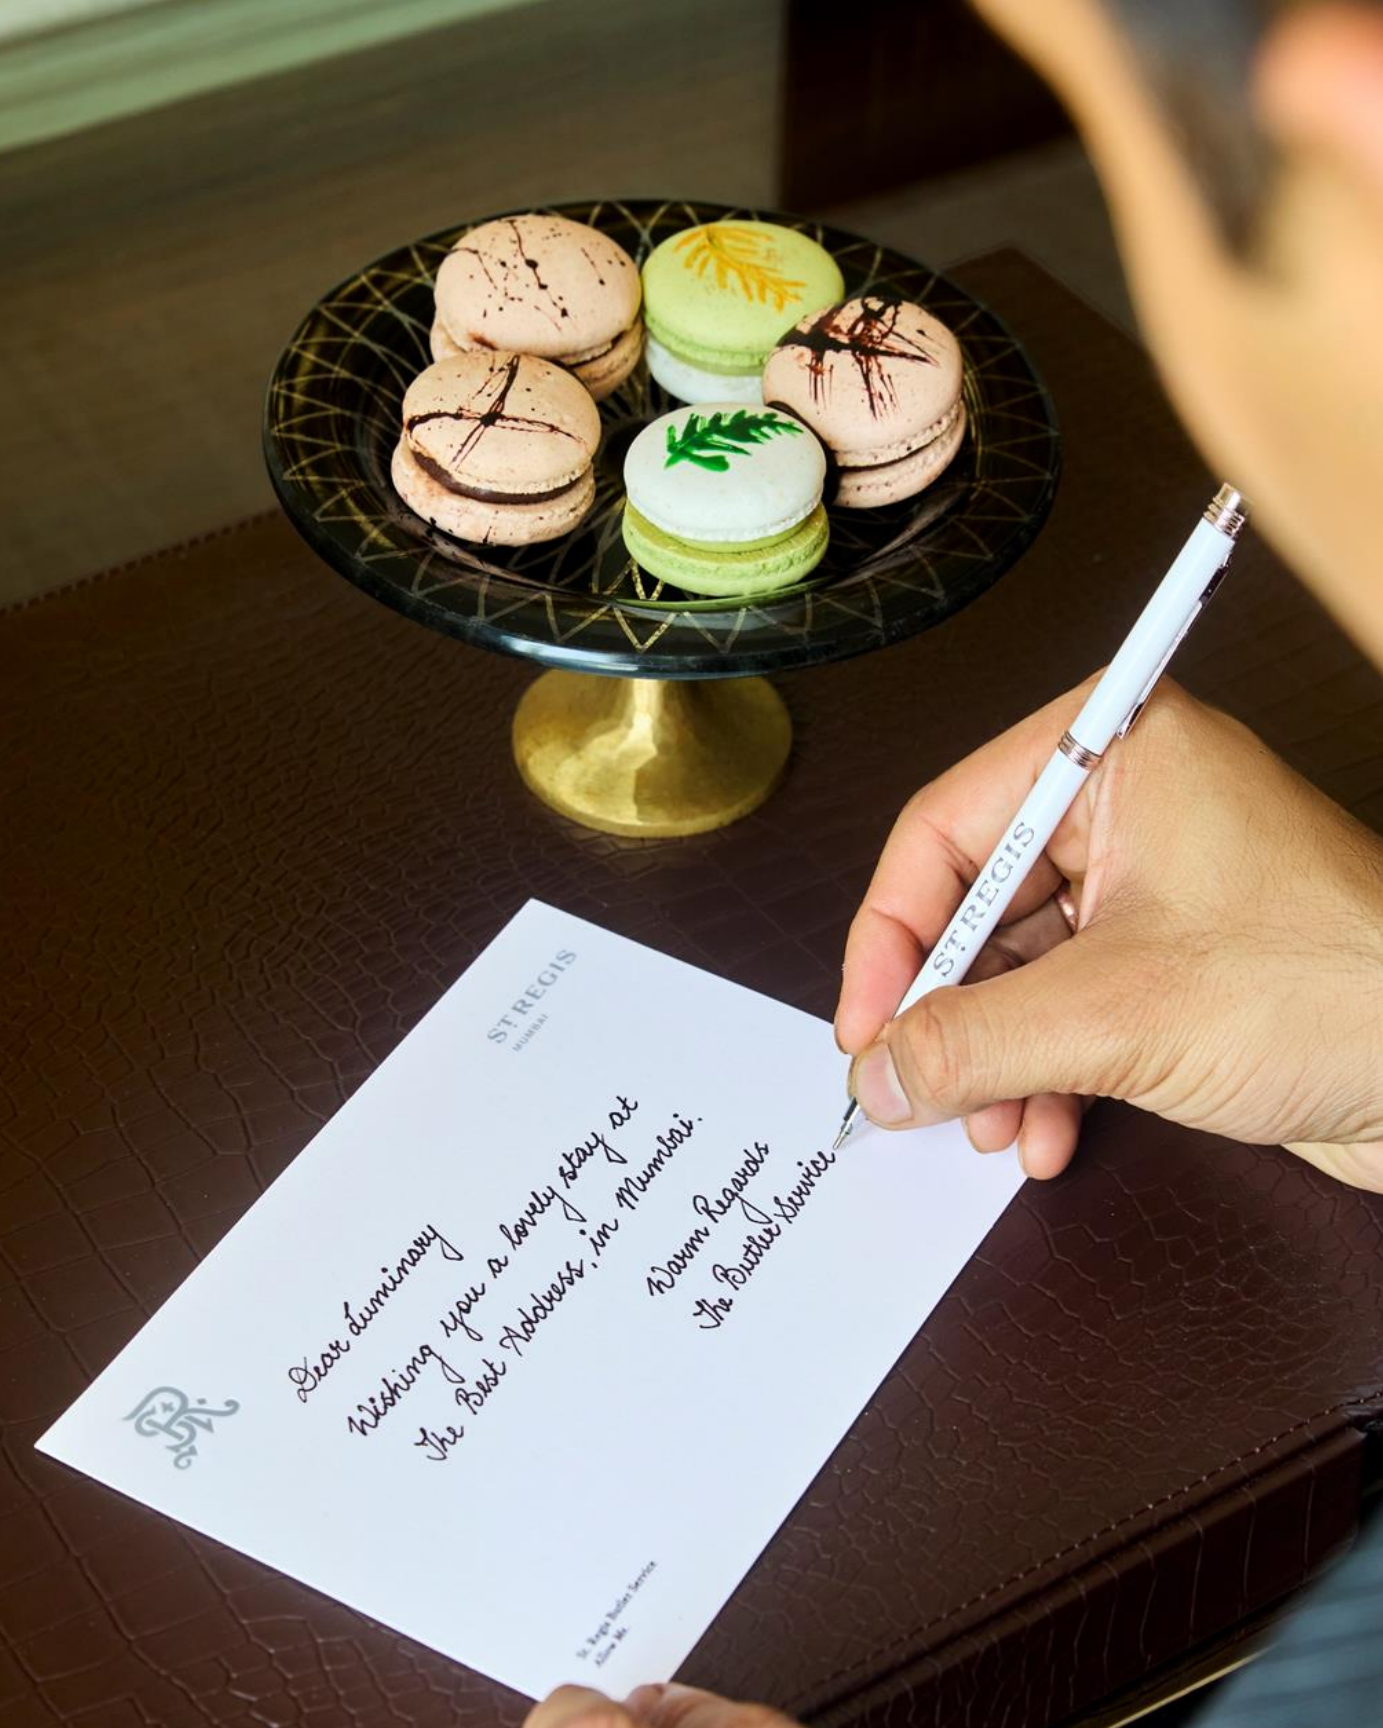 ST. REGIS
MUMBAI
Dear Luminary
Wishing you a lovely stay at
The Best Address, in Mumbai.
Warm Regards
The Butler Service
St. Regis Butler Service
Allow Me.
ST. REGIS